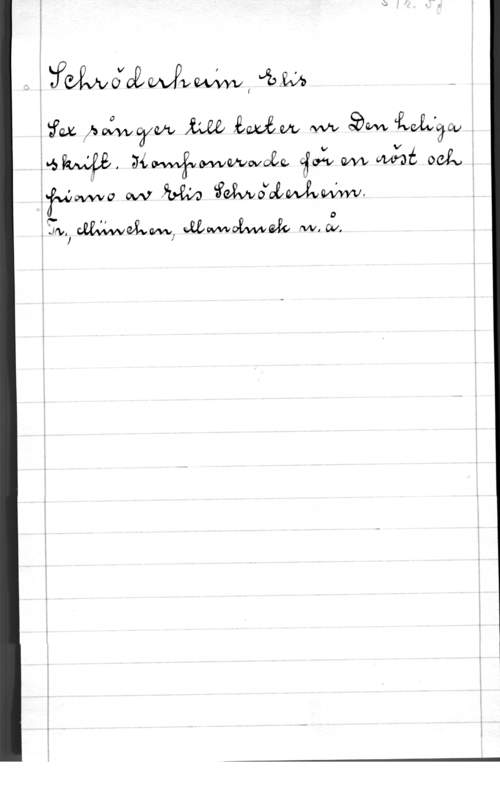 Schröderheim, Elis
Sex sånger till texter ur Den heliga
skrift. Komponerade för en röst och
piano av Elis Schröderheim.
Tr., München, Mandruck u. å.